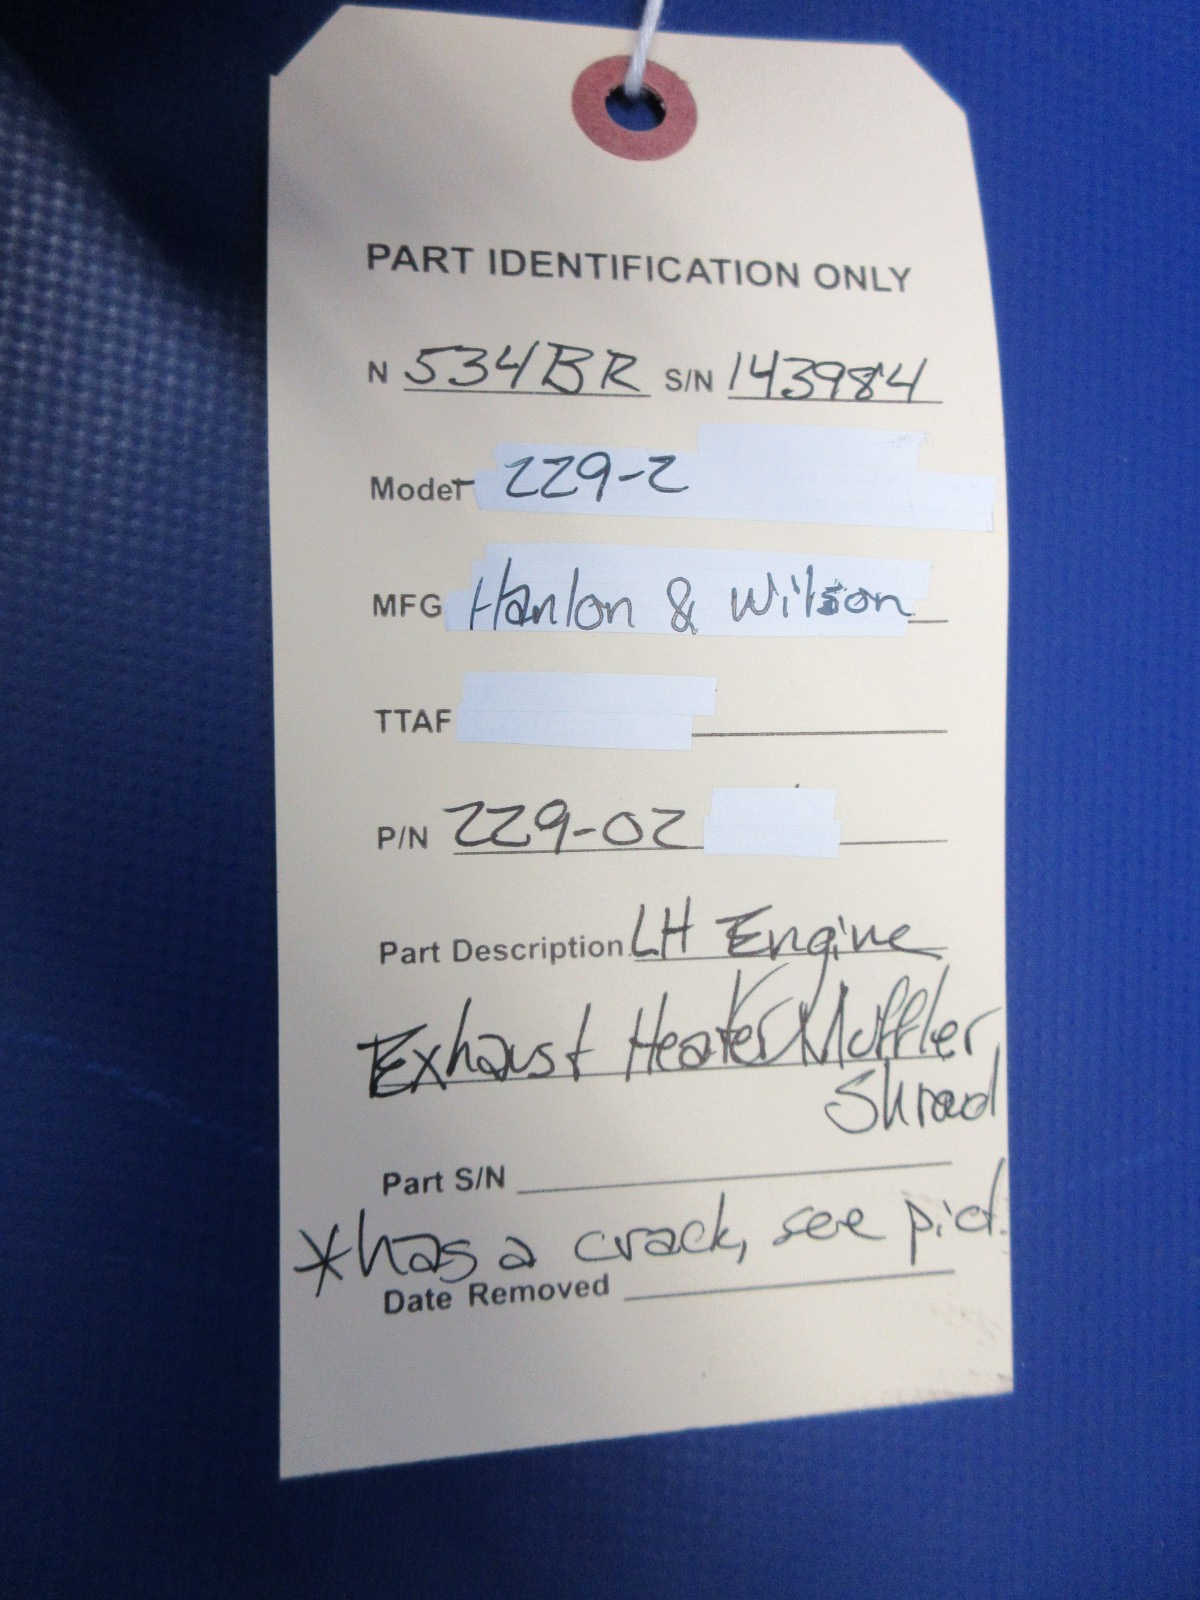 PART IDENTIFICATION ONLY
N 534BR S/N 143984
Model 229-2
MFG Hanlon & Wilson
TTAF
P/N 229-02
Part Description LH Engine
Exhaust Heater Muffler
Shroud
Part S/N
*has a crack, see pict.
Date Removed